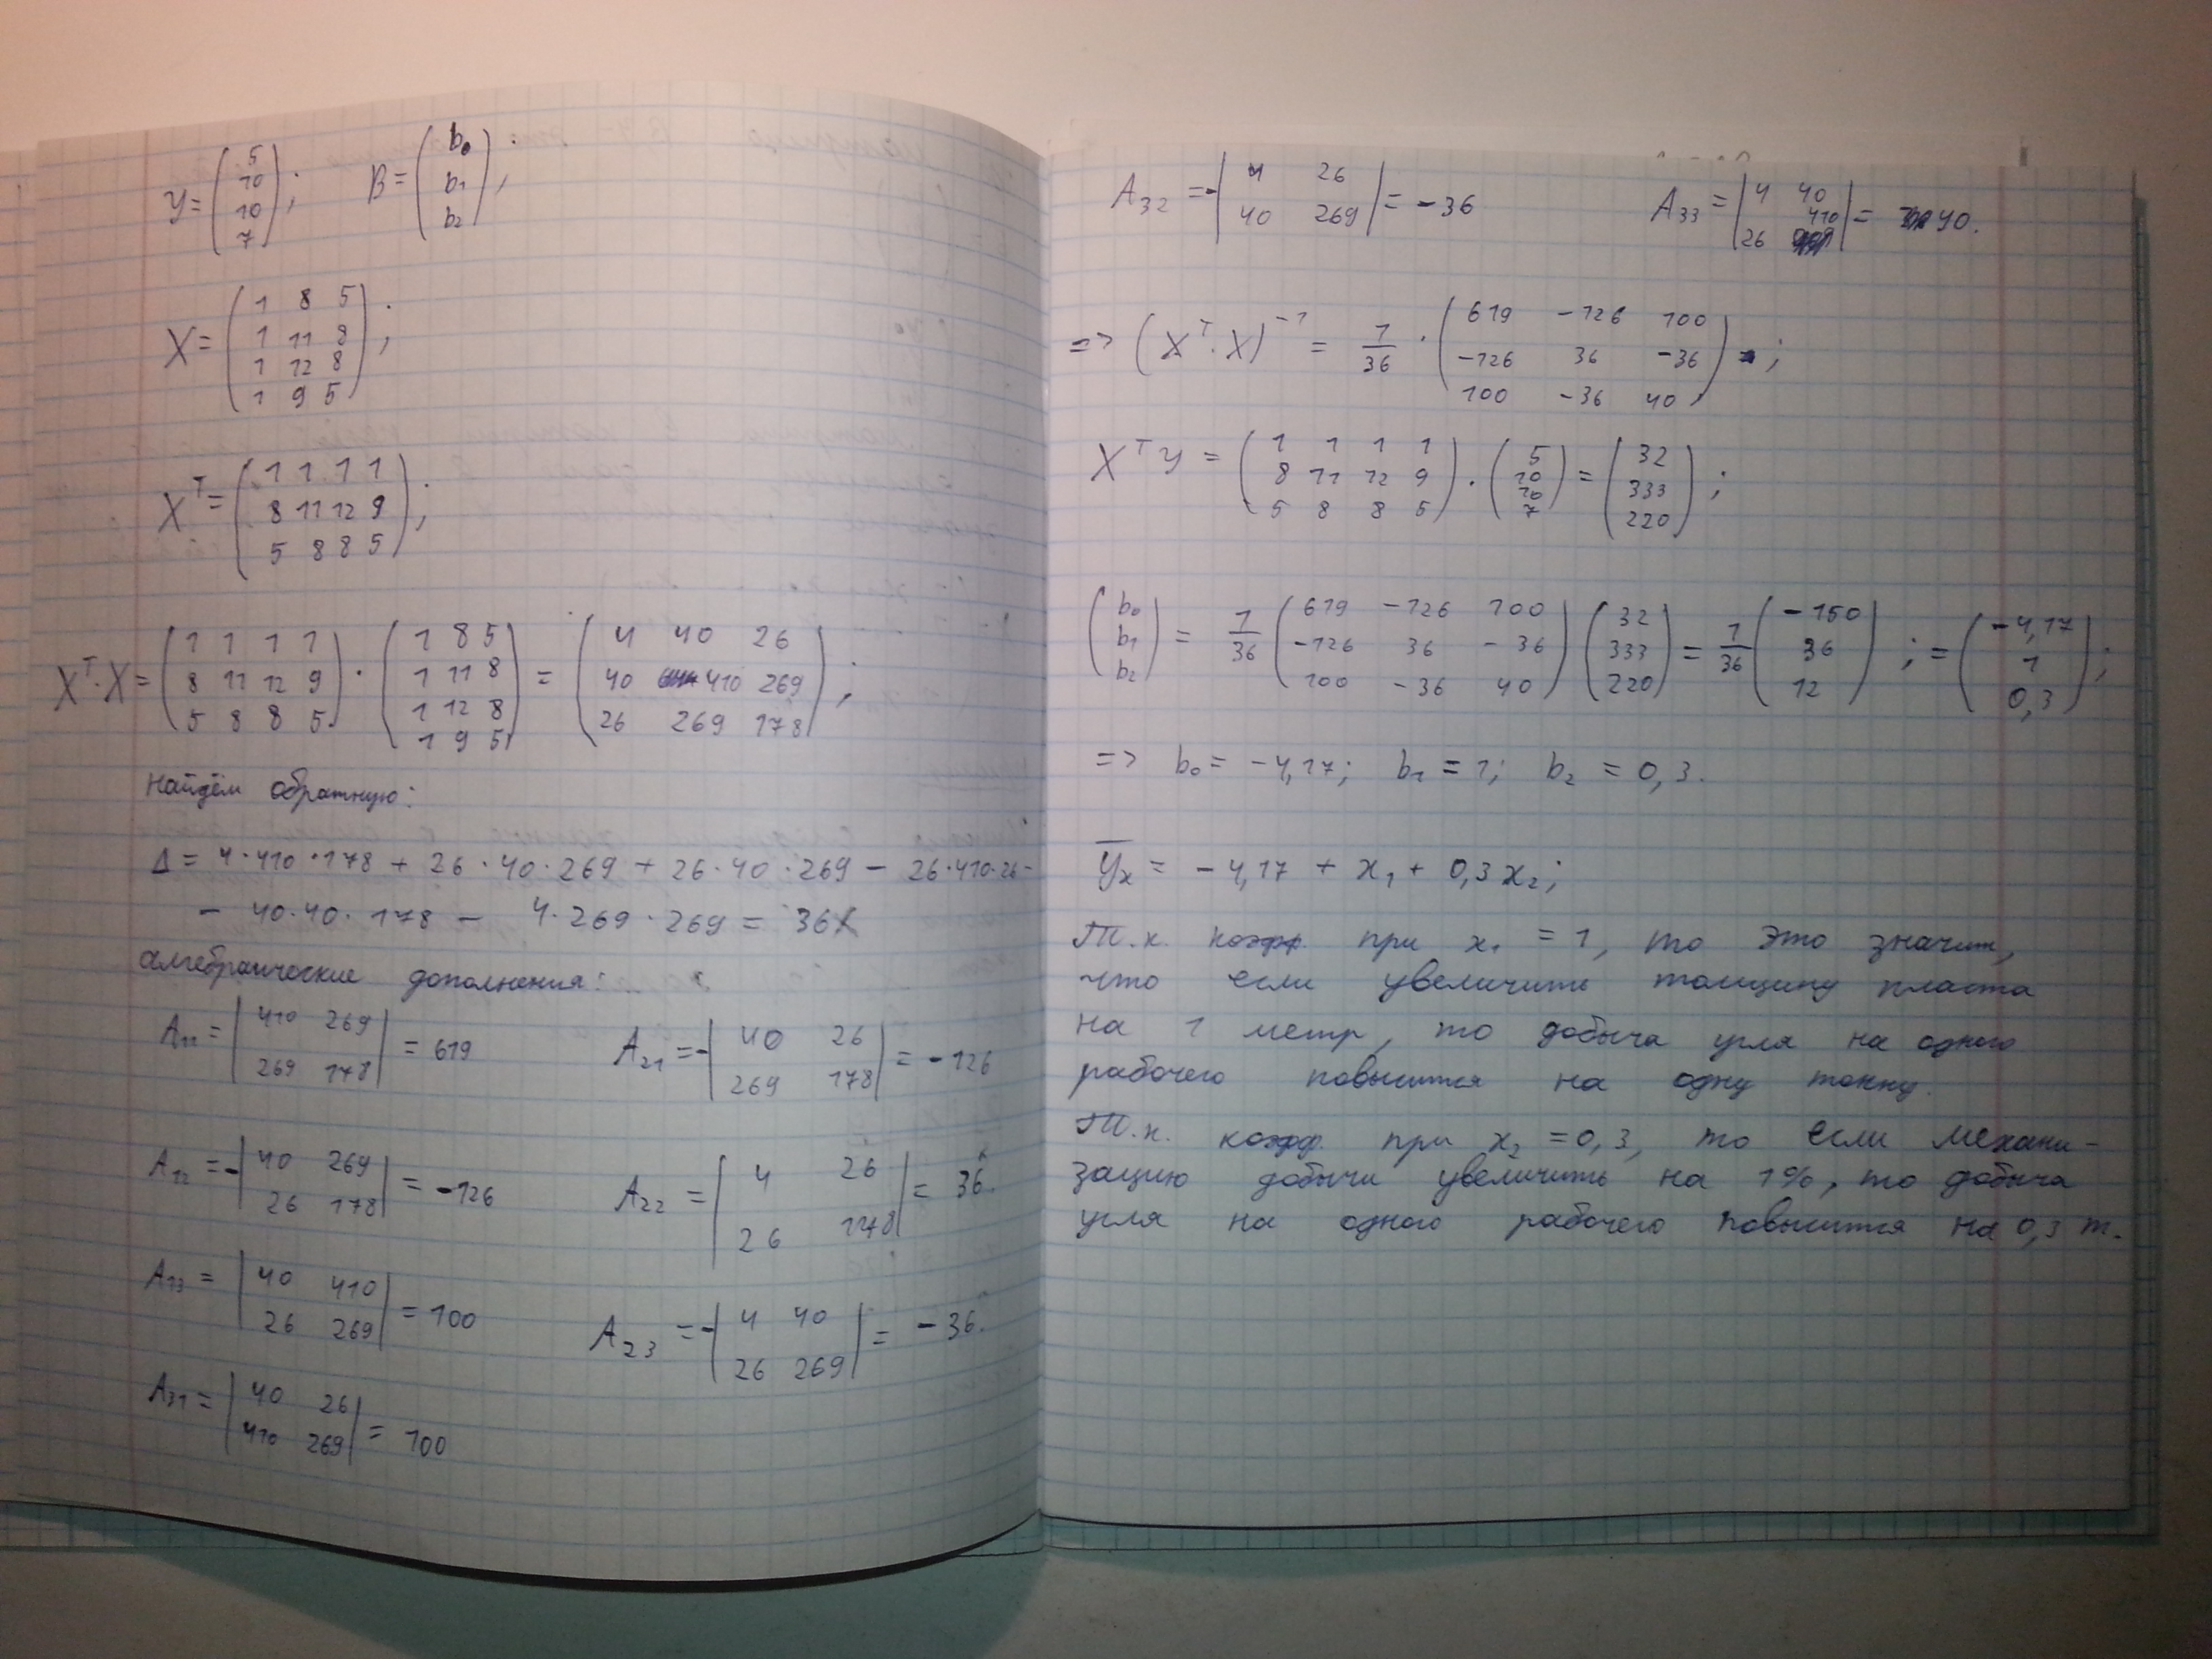 Y = (5 10 10 7); B = (b₀ b₁ b₂);
X = (1 8 5
1 11 8
1 12 8
1 9 5);
Xᵀ = (1 1 1 1
8 11 12 9
5 8 8 5);
Xᵀ·X = (1 1 1 1
8 11 12 9
5 8 8 5) · (1 8 5
1 11 8
1 12 8
1 9 5) = (4 40 26
40 410 269
26 269 178);
Найдём обратную:
Δ = 4·410·178 + 26·40·269 + 26·40·269 − 26·410·26 −
− 40·40·178 − 4·269·269 = 36
алгебраические дополнения:
A₁₁ = |410 269
269 178| = 619
A₂₁ = −|40 26
269 178| = −126
A₁₂ = −|40 269
26 178| = −126
A₂₂ = |4 26
26 178| = 36.
A₁₃ = |40 410
26 269| = 100
A₂₃ = −|4 40
26 269| = −36.
A₃₁ = |40 26
410 269| = 100
A₃₂ = −|4 26
40 269| = −36
A₃₃ = |4 40
26 410| = 40.
=> (Xᵀ·X)⁻¹ = 1/36 · (619 −126 100
−126 36 −36
100 −36 40);
XᵀY = (1 1 1 1
8 11 12 9
5 8 8 5) · (5 10 10 7) = (32 333 220);
(b₀ b₁ b₂) = 1/36 (619 −126 100
−126 36 −36
100 −36 40) (32 333 220) = 1/36 (−150 36 12); = (−4,17 1 0,3);
=> b₀ = −4,17; b₁ = 1; b₂ = 0,3.
y̅ₓ = −4,17 + x₁ + 0,3x₂;
Т.к. коэфф. при x₁ = 1, то это значит,
что если увеличить толщину пласта
на 1 метр, то добыча угля на одного
рабочего повысится на одну тонну.
Т.к. коэфф. при x₂ = 0,3, то если механи-
зацию добычи увеличить на 1%, то добыча
угля на одного рабочего повысится на 0,3 т.